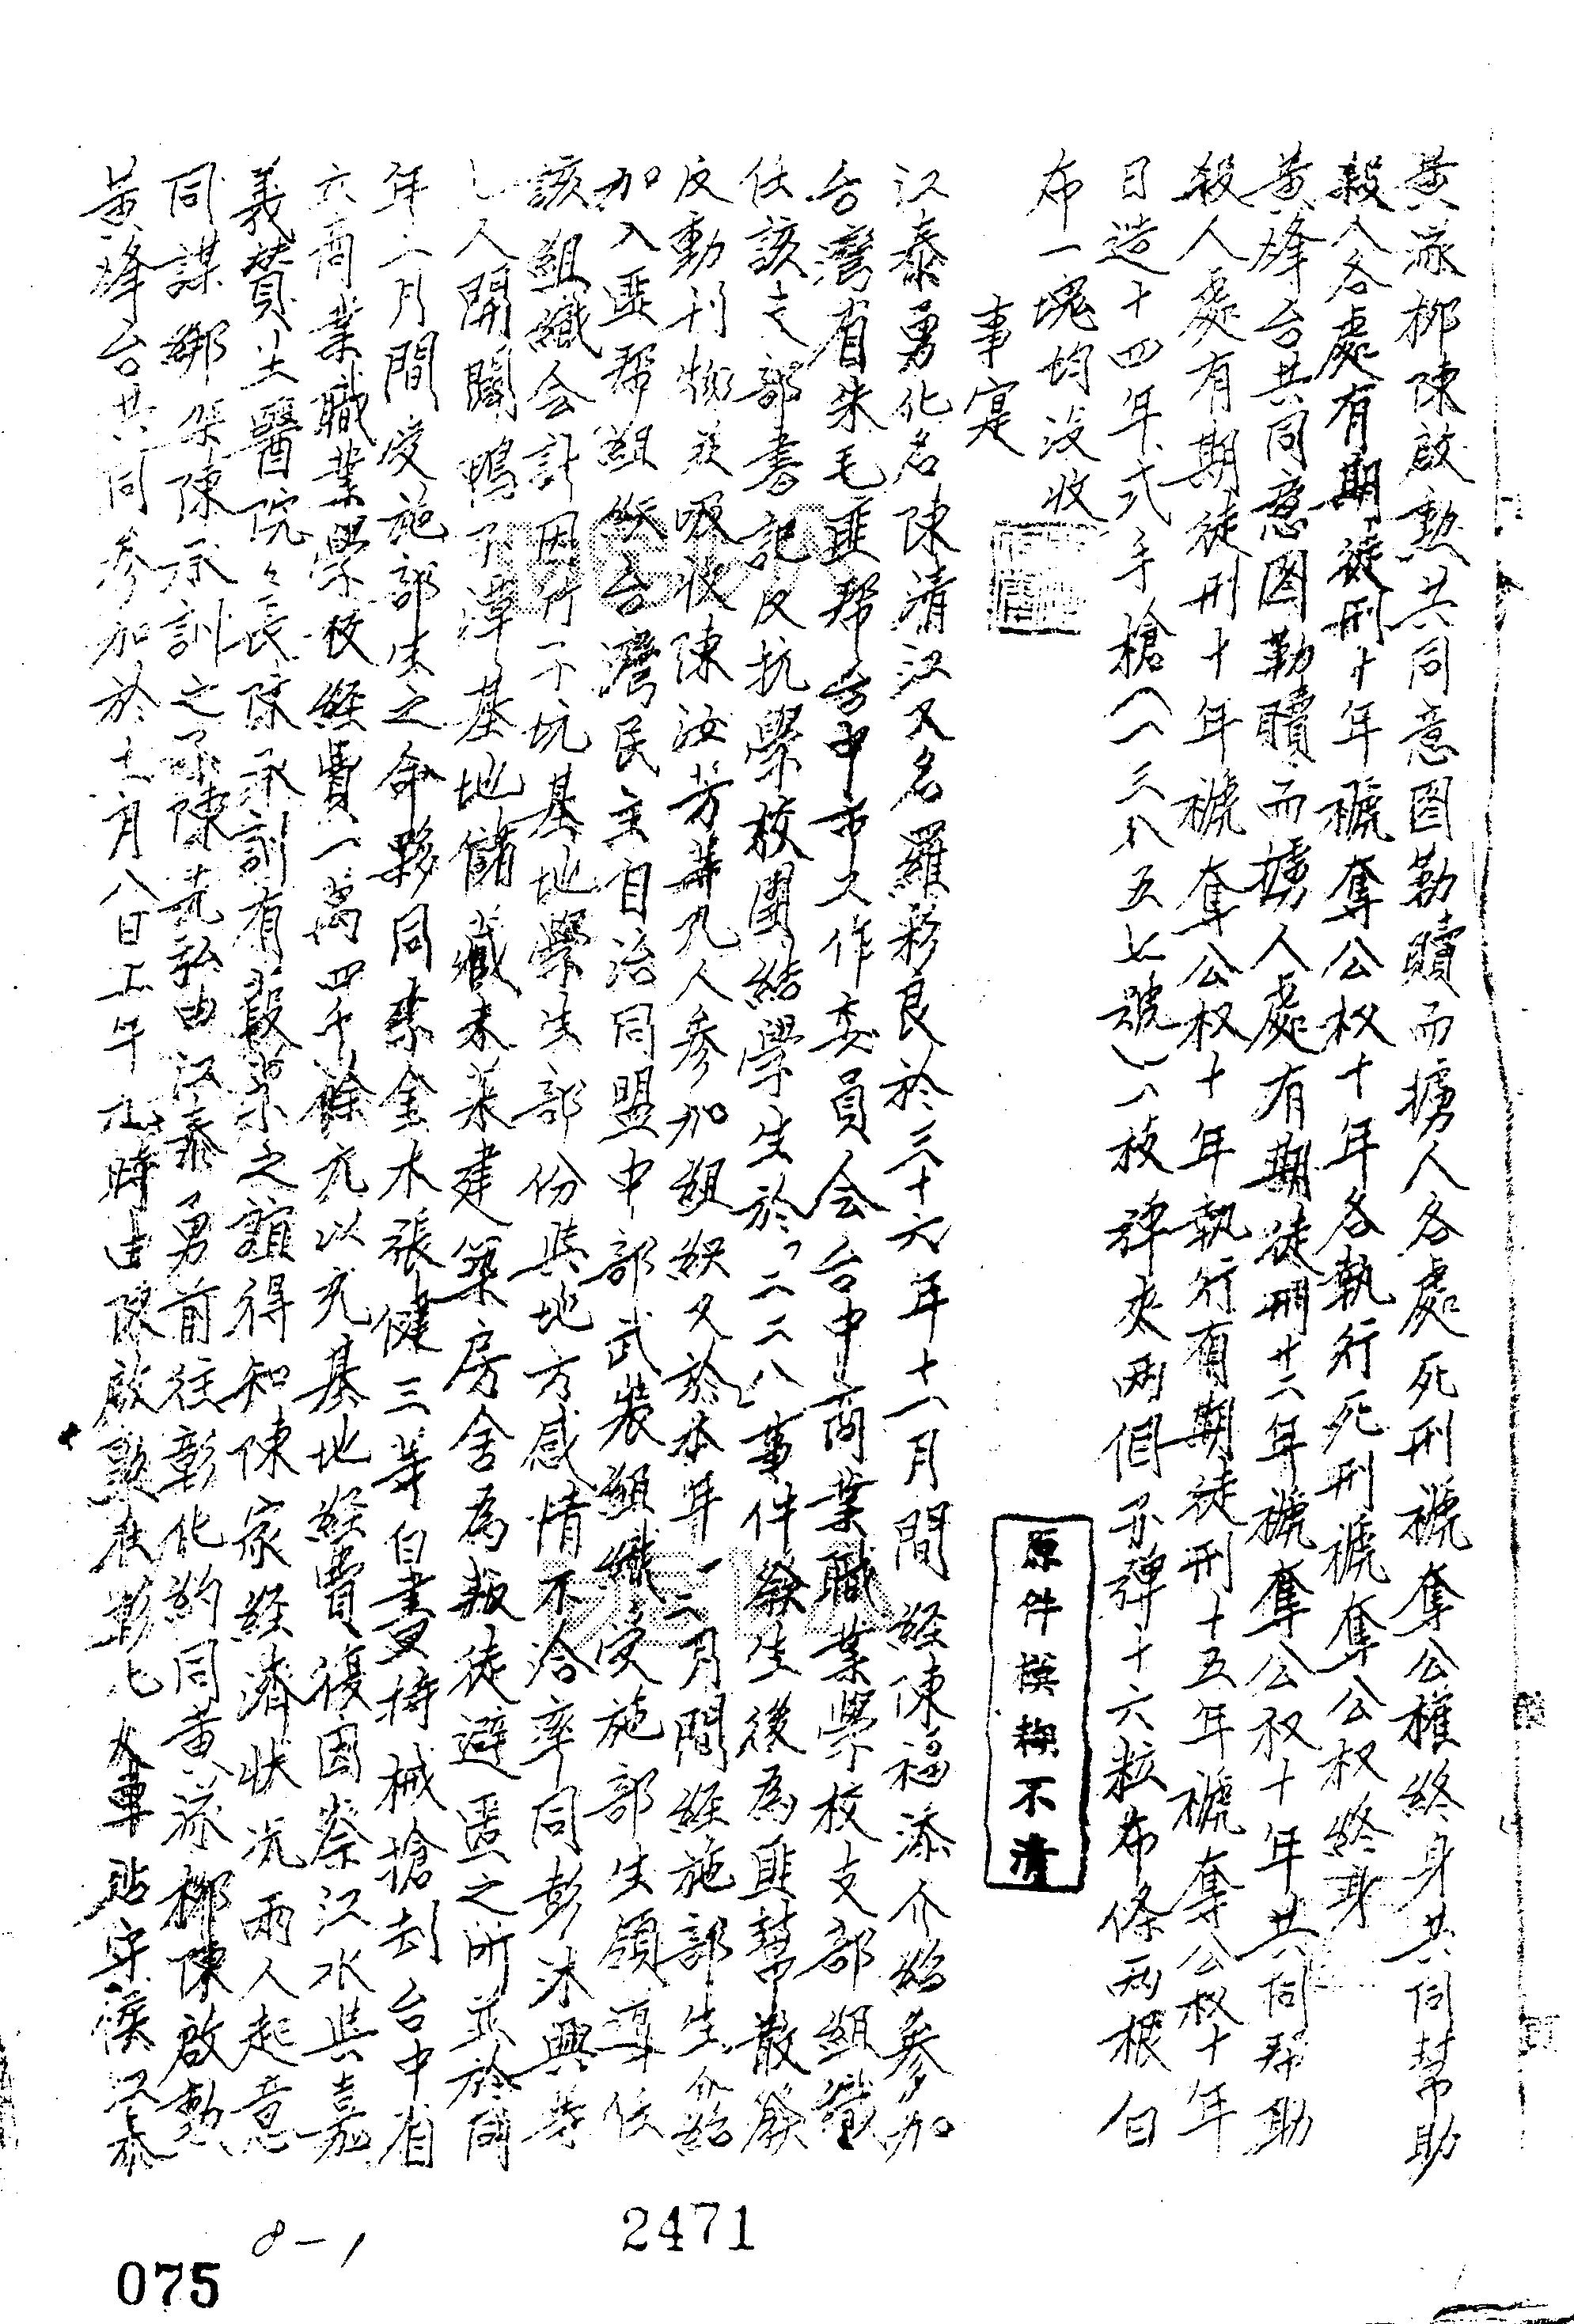 黃滌柳陳啟勳共同意圖勒贖而擄人各處死刑褫奪公權終身共同幫助
殺人各處有期徒刑十年褫奪公权十年各執行死刑褫奪公权終身
黃烽台共同意图勒贖而擄人處有期徒刑十二年褫奪公权十年共同帮助
殺人處有期徒刑十年褫奪公权十年執行有期徒刑十五年褫奪公权十年
日造十四年式手槍(一三八五七號)一枚彈夾兩個子彈十六粒布條兩根白
布一塊均没收
事寔
江泰勇化名陳清江又名羅彩良於三十六年十一月間經陳福添介紹參加
台灣省朱毛匪帮台中市工作委員会台中商業職業學校支部組織
任該支部書記反抗學校團結學生於「二二八」事件發生後為匪幫散發
反動刊物并吸收陳汝芳等九人參加組織又於本年一二月間經施部生介紹
加入匪帮組織台灣民主自治同盟中部武装組織受施部生領導任
該組織会計因竹子坑基地學生部份與地方感情不洽率同彭沐興等
七人開闢鴨子潭基地儲藏未萊建築房舍為叛徒避匿之所並於同
年二月間受施部生之命夥同李金木張健三等白晝持械搶刼台中省
立商業職業學校經費一萬四千餘元以充基地經費復因蔡江水與嘉
義賛生醫院々長陳承訓有殺弟之誼得知陳家經濟狀况兩人起意
同謀綁架陳承訓之子陳堯弘由江泰勇前往彰化約同黃滌柳陳啟勳
黃烽台共同參加於十一月八日上午九時由陳啟勳在彰化火車站守候江泰
原件模糊不清
2471
8-1
075